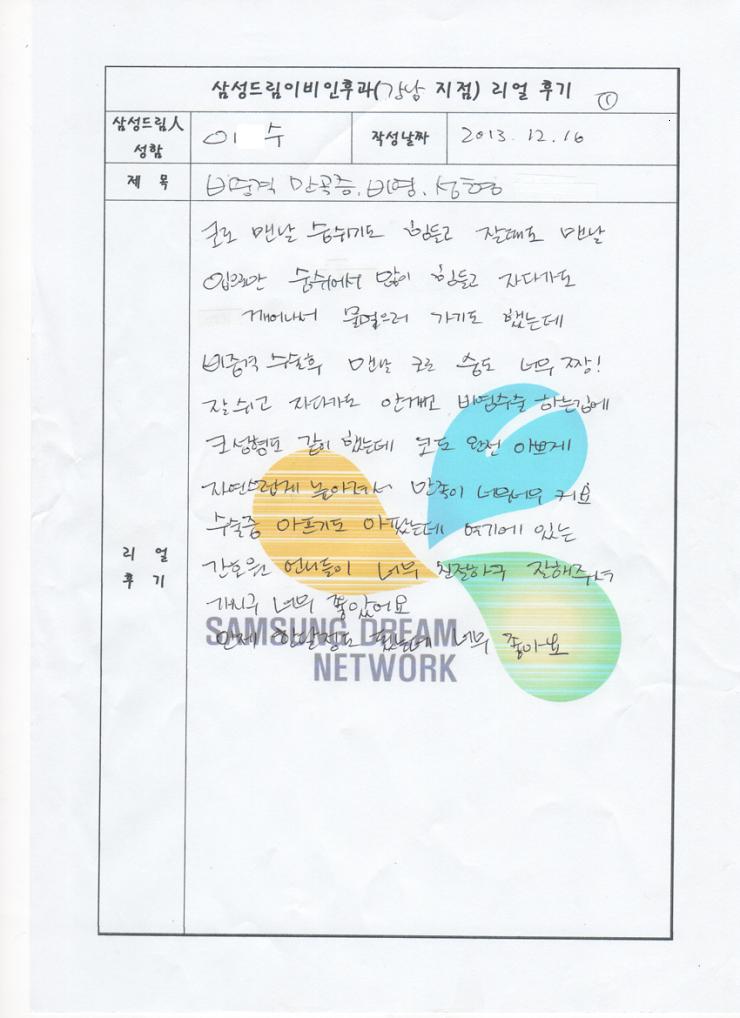 삼성드림이비인후과(강남 지점) 리얼 후기 ①
삼성드림人 성함
이 수
작성날짜
2013. 12. 16
제 목
비중격 만곡증. 비염. 성형
리 얼 후 기
코로 맨날 숨쉬기도 힘들고 잘때도 맨날
입으로만 숨쉬어서 많이 힘들고 자다가도
깨어나서 물먹으러 가기도 했는데
비중격 수술후 맨날 코로 숨도 너무 짱!
잘쉬고 자다가도 안깨고 비염수술 하는김에
코성형도 같이 했는데 코도 완전 이쁘게
자연스럽게 높아져서 만족이 너무너무 커요
수술중 아프기도 아팠는데 여기에 있는
간호원 언니들이 너무 친절하구 잘해주셔
가시구 너무 좋았어요
인제 한달정도 됬는데 너무 좋아요
SAMSUNG DREAM
NETWORK